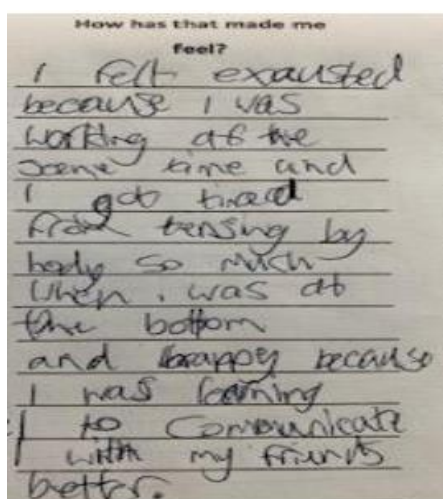 How has that made me
feel?
I felt exausted
because I was
working at the
same time and
I got tired
from tensing by
body so much
when i was at
the bottom
and happy because
I was learning
to Communicate
with my friends
better.